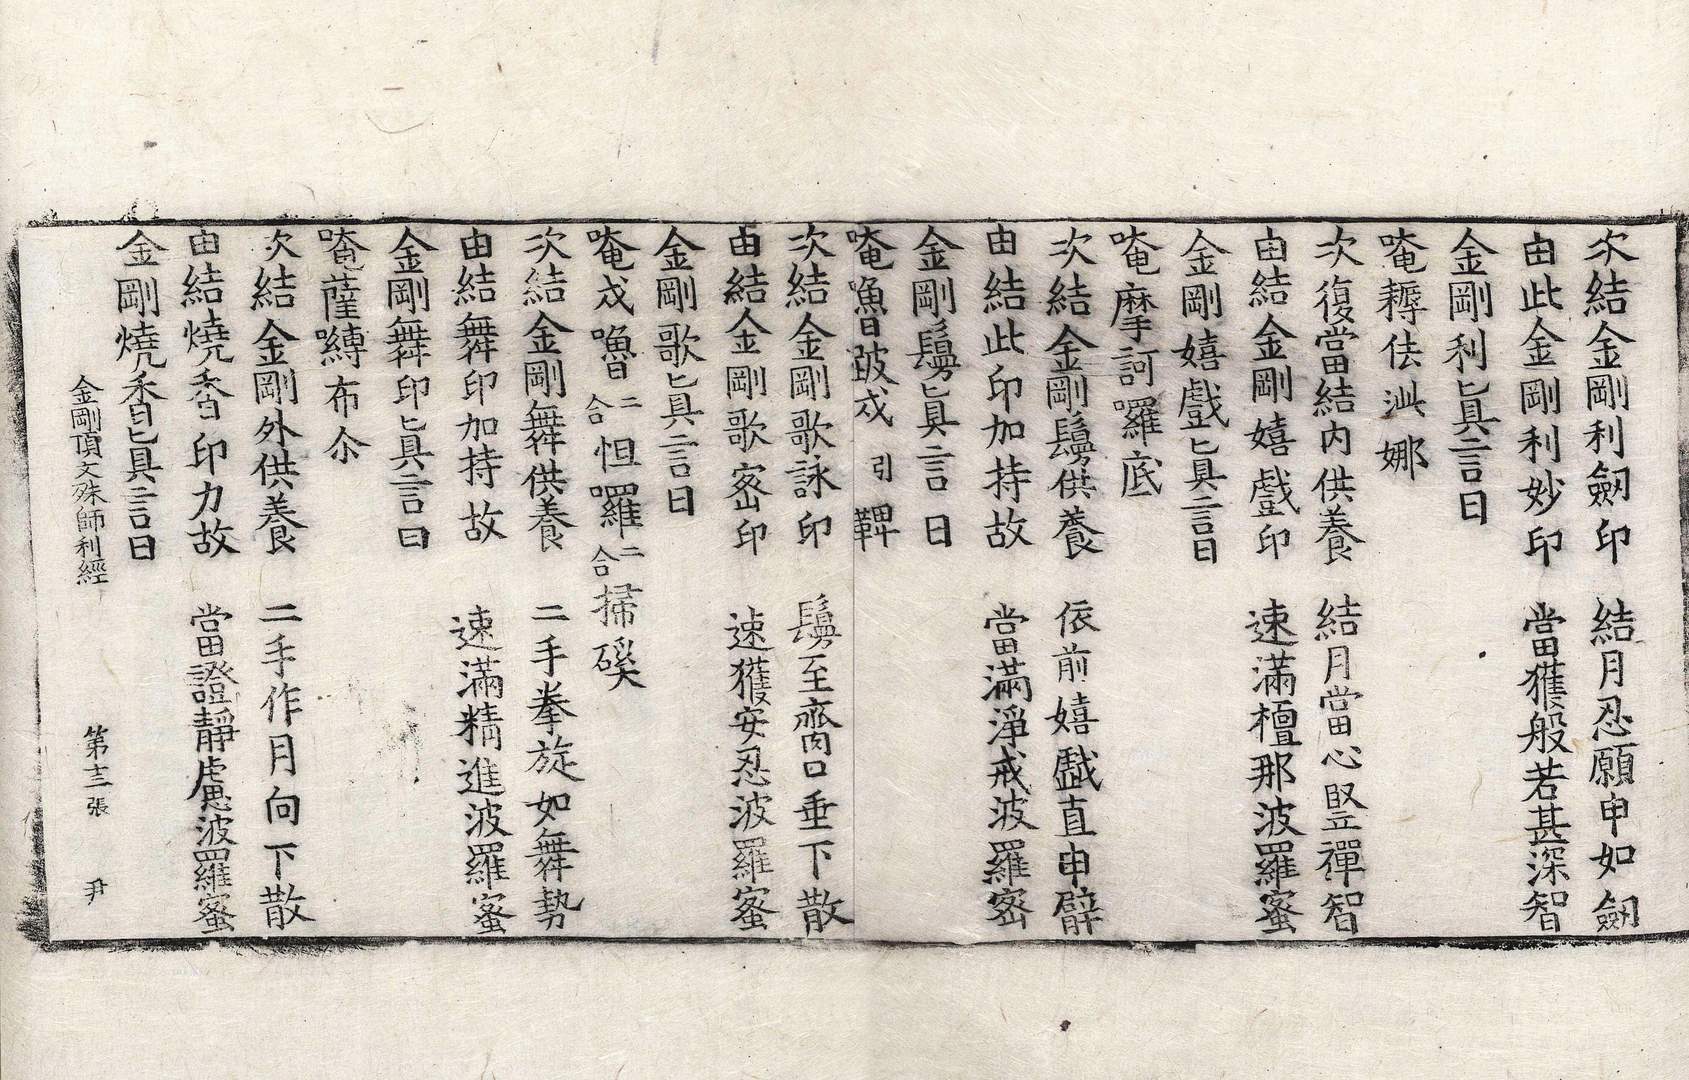 次結金剛利劒印　結月忍願申如劒
由此金剛利妙印　當獲般若甚深智
金剛利眞言曰
唵耨佉泚娜
次復當結内供養　結月當心竪禪智
由結金剛嬉戲印　速滿檀那波羅蜜
金剛嬉戲眞言曰
唵摩訶囉底
次結金剛鬘供養　依前嬉戲直申臂
由結此印加持故　當滿淨戒波羅蜜
金剛鬘眞言曰
唵嚕跛戍引鞞
次結金剛歌詠印　鬘至齋口垂下散
由結金剛歌密印　速獲安忍波羅蜜
金剛歌眞言曰
唵戍嚕二合怛囉二合掃磎
次結金剛舞供養　二手拳旋如舞勢
由結舞印加持故　速滿精進波羅蜜
金剛舞印眞言曰
唵薩嚩布尒
次結金剛外供養　二手作月向下散
由結燒香印力故　當證靜慮波羅蜜
金剛燒香眞言曰
金剛頂文殊師利經　第十三張　尹